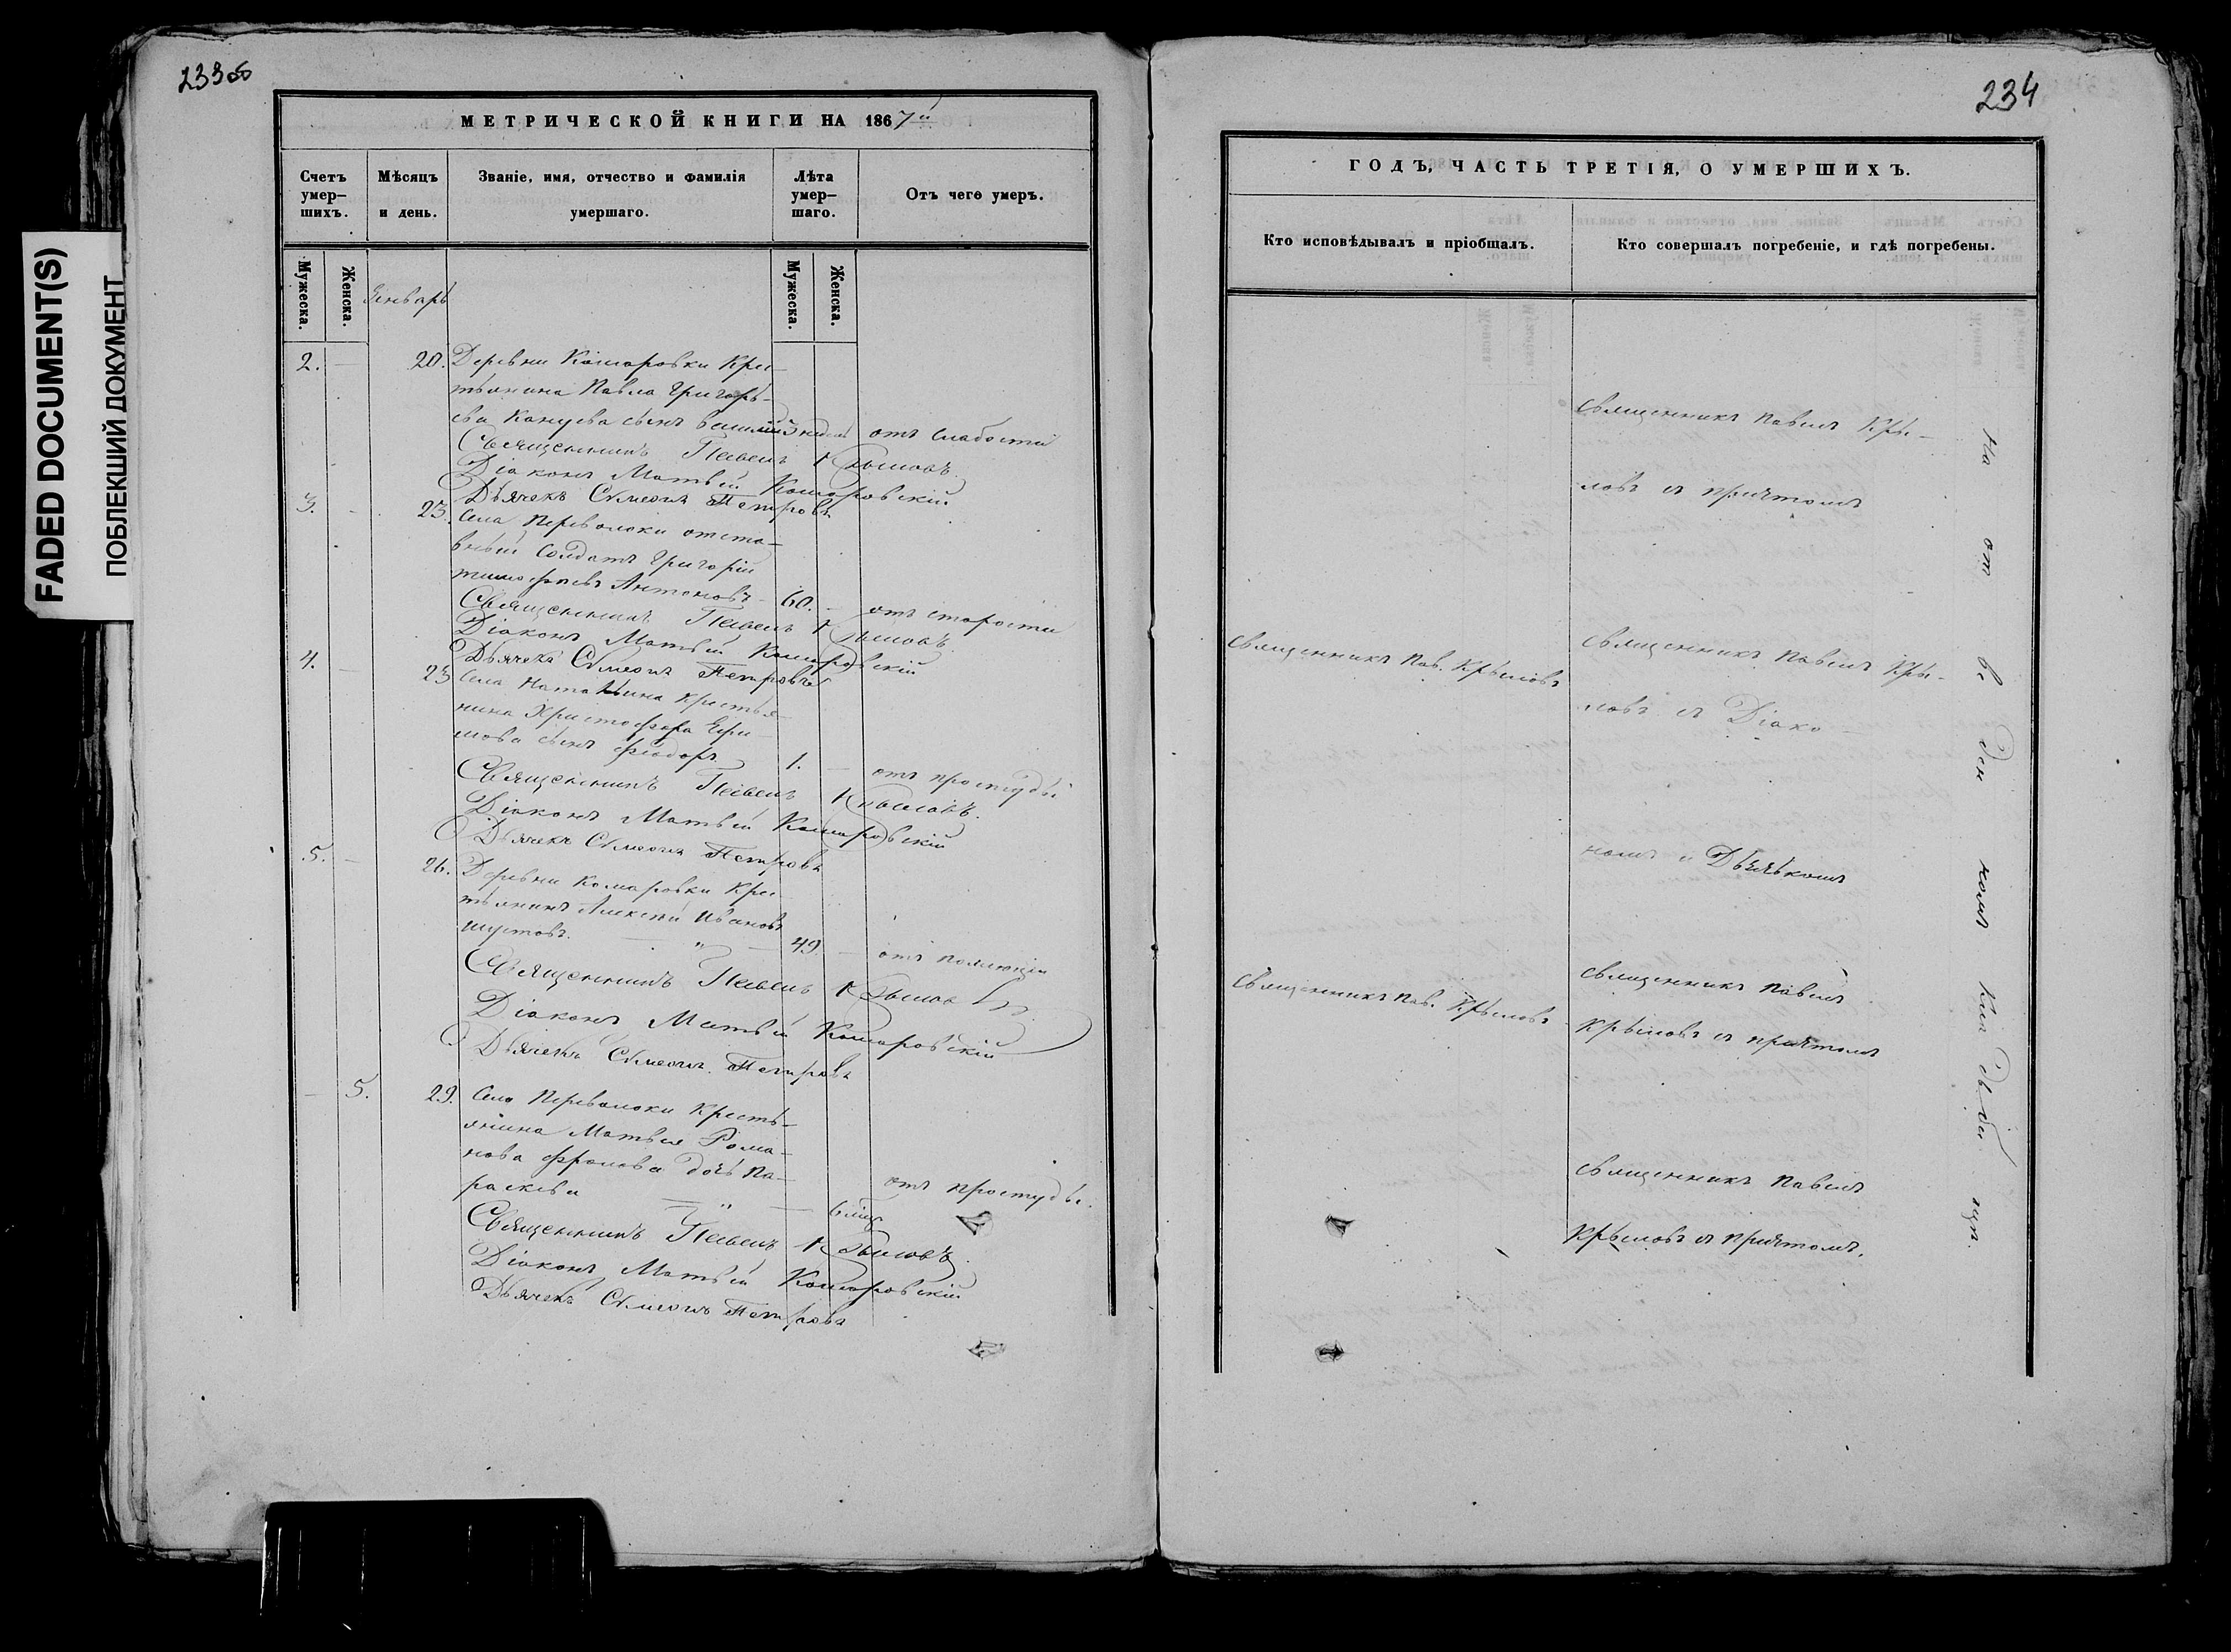 233об
МЕТРИЧЕСКОЙ КНИГИ НА 1867й
Счетъ умер-шихъ.
Мѣсяцъ и день.
Званіе, имя, отчество и фамилія умершаго.
Лѣта умер-шаго.
Отъ чего умеръ.
Мужеска.
Женска.
Январь
Мужеска.
Женска.
2. — 20. Деревни Комаровки Кре-
стьянина Павла Григорь-
ева сынъ Василій 3 недѣл отъ слабости
Священникъ Павелъ Крыловъ.
Діаконъ Матвѣй Комаровскій
Дьячекъ Сѵмеонъ Петровъ
3. - 23. Села Переволоки отста-
вный Солдатъ Григорій
Тимофѣевъ Антоновъ - 60. - отъ старости
Священникъ Павелъ Крыловъ.
Діаконъ Матвѣй Комаровскій
Дьячекъ Сѵмеонъ Петровъ
4. — 23 Села Натальина крестья-
нина Христофора Ефи-
мова сынъ Феодоръ 1. — отъ простуды
Священникъ Павелъ Крыловъ.
Діаконъ Матвѣй Комаровскій
Дьячекъ Сѵмеонъ Петровъ
5. — 26. Деревни Комаровки Кре-
стьянинъ Алексѣй Ивановъ
Шустовъ. — " — 49. — отъ
Священникъ Павелъ Крыловъ.
Діаконъ Матвѣй Комаровскій
Дьячекъ Сѵмеонъ Петровъ
— 5. 29. Села Переволоки Кресть-
янина Матвея Рома-
нова Фролова дочь Па-
раскева — " — 6 мѣс отъ простуды.
Священникъ Павелъ Крыловъ.
Діаконъ Матвѣй Комаровскій
Дьячекъ Сѵмеонъ Петровъ
FADED DOCUMENT(S)
ПОБЛЕКШИЙ ДОКУМЕНТ
234
ГОДЪ, ЧАСТЬ ТРЕТІЯ, О УМЕРШИХЪ.
Кто исповѣдывалъ и пріобщалъ.
Кто совершалъ погребеніе, и гдѣ погребены.
Священникъ Павелъ Кры-
ловъ съ причтомъ
Священникъ Пав. Крыловъ
Священникъ Павелъ Кры-
ловъ съ Діако-
номъ и Дьячькомъ
Священникъ Пав. Крыловъ
Священникъ Павелъ
Крыловъ съ причтомъ
Священникъ Павелъ
Крыловъ съ причтомъ.
На от ве ден номъ кла дьби щѣ.